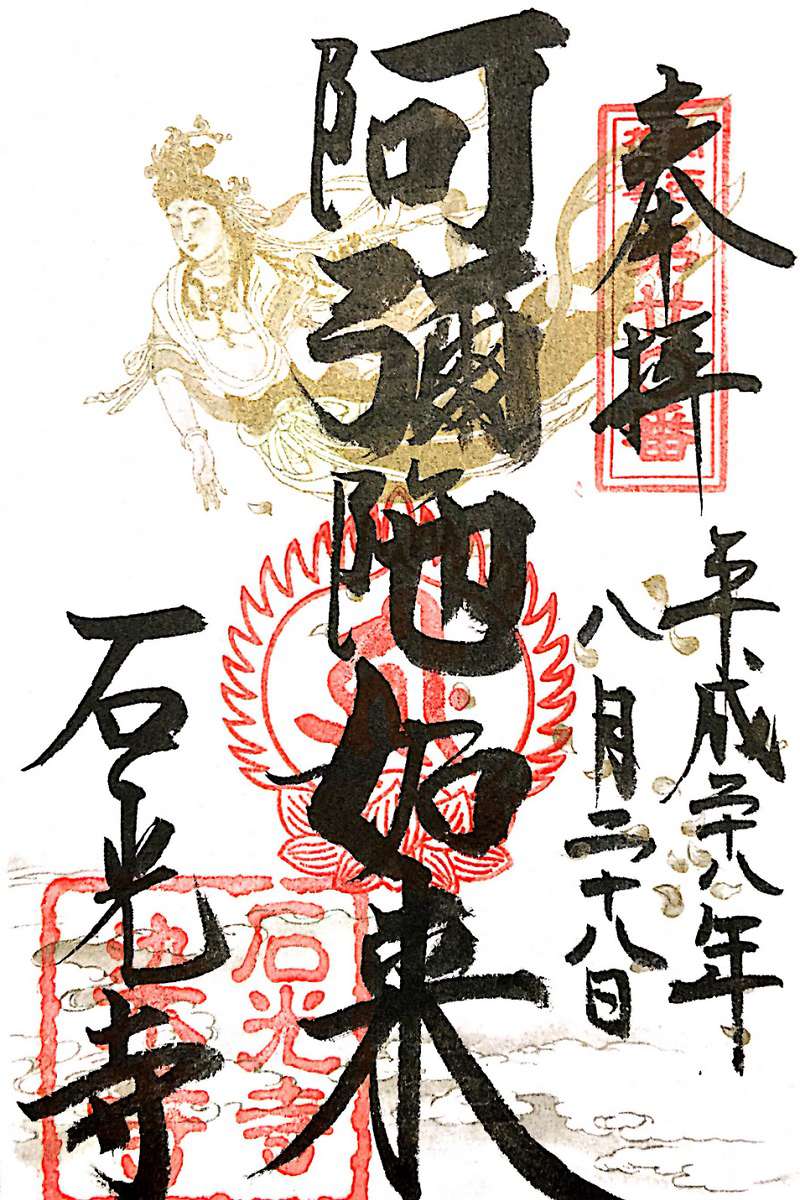 奉拝
平成二十八年
八月二十八日
阿彌陁如来
石光寺
石光寺